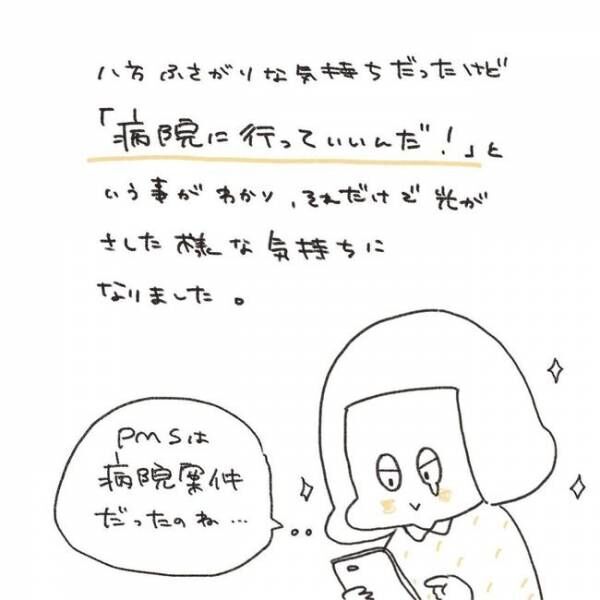 八方ふさがりな気持ちだったけど
「病院に行っていいんだ!」と
いう事がわかり、それだけで光が
さした様な気持ちに
なりました。
PMSは
病院案件
だったのね…